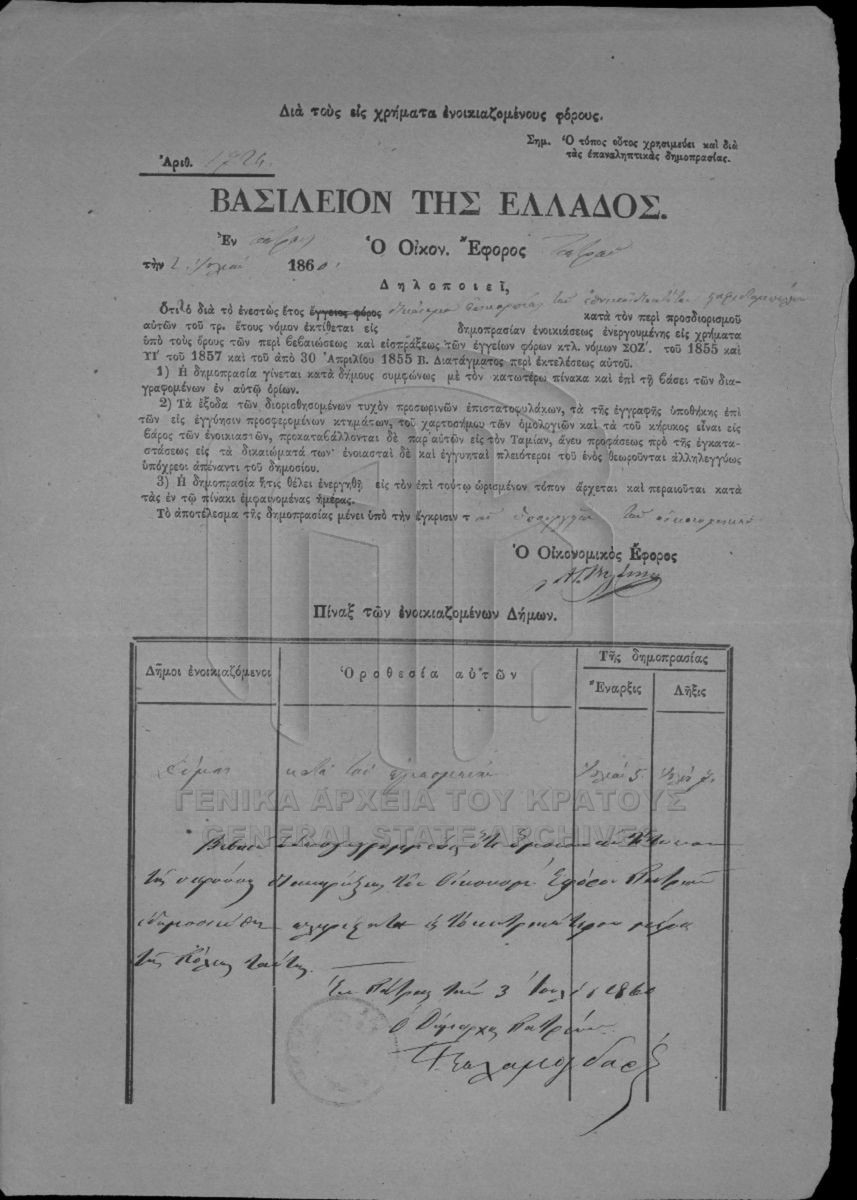 Διὰ τοὺς εἰς χρήματα ἐνοικιαζομένους φόρους.
Σημ. Ὁ τόπος οὗτος χρησιμεύει καὶ διὰ
τὰς ἐπαναληπτικὰς δημοπρασίας.
Ἀριθ. 1724.
ΒΑΣΙΛΕΙΟΝ ΤΗΣ ΕΛΛΑΔΟΣ.
Ἐν Πάτραις Ὁ Οἰκον. Ἔφορος Πατρῶν
τὴν 2 Ἰουλίου 1860.
Δηλοποιεῖ,
Ὅτι ὁ διὰ τὸ ἐνεστὼς ἔτος ἔγγειος φόρος κατὰ τὸν περὶ προσδιορισμοῦ
αὐτῶν τοῦ τρ. ἔτους νόμον ἐκτίθεται εἰς δημοπρασίαν ἐνοικιάσεως ἐνεργουμένης εἰς χρήματα
ὑπὸ τοὺς ὅρους τῶν περὶ βεβαιώσεως καὶ εἰσπράξεως τῶν ἐγγείων φόρων κτλ. νόμων ΣΟΖ΄. τοῦ 1855 καὶ
ΥΙ΄ τοῦ 1857 καὶ τοῦ ἀπὸ 30 Ἀπριλίου 1855 Β. Διατάγματος περὶ ἐκτελέσεως αὐτοῦ.
1) Ἡ δημοπρασία γίνεται κατὰ δήμους συμφώνως μὲ τὸν κατωτέρω πίνακα καὶ ἐπὶ τῇ βάσει τῶν δια-
γραφομένων ἐν αὐτῷ ὁρίων.
2) Τὰ ἔξοδα τῶν διορισθησομένων τυχὸν προσωρινῶν ἐπιστατοφυλάκων, τὰ τῆς ἐγγραφῆς ὑποθήκης ἐπὶ
τῶν εἰς ἐγγύησιν προσφερομένων κτημάτων, τοῦ χαρτοσήμου τῶν ὁμολογιῶν καὶ τὰ τοῦ κήρικος εἶναι εἰς
βάρος τῶν ἐνοικιαστῶν, προκαταβάλλονται δὲ παρ' αὐτῶν εἰς τὸν Ταμίαν, ἄνευ προφάσεως πρὸ τῆς ἐγκατα-
στάσεως εἰς τὰ δικαιώματά των· ἐνοιασταὶ δὲ καὶ ἐγγυηταὶ πλειότεροι τοῦ ἑνὸς θεωροῦνται ἀλληλεγγύως
ὑπόχρεοι ἀπέναντι τοῦ δημοσίου.
3) Ἡ δημοπρασία ἥτις θέλει ἐνεργηθῆ εἰς τὸν ἐπὶ τούτῳ ὡρισμένον τόπον ἄρχεται καὶ περαιοῦται κατὰ
τὰς ἐν τῷ πίνακι ἐμφαινομένας ἡμέρας.
Τὸ ἀποτέλεσμα τῆς δημοπρασίας μένει ὑπὸ τὴν ἔγκρισιν τοῦ Ὑπουργείου τῶν οἰκονομικῶν
Ὁ Οἰκονομικὸς Ἔφορος
Πίναξ τῶν ἐνοικιαζομένων Δήμων.
Δῆμοι ἐνοικιαζόμενοι Ὁροθεσία αὐτῶν Τῆς δημοπρασίας
Ἔναρξις Λῆξις
Ἰουλίου 5
ΓΕΝΙΚΑ ΑΡΧΕΙΑ ΤΟΥ ΚΡΑΤΟΥΣ
GENERAL STATE ARCHIVES
τῆς παρούσης διακηρύξεως τοῦ Οἰκονομ. Ἐφόρου Πατρῶν
τῆς πόλεως ταύτης.
Ἐν Πάτραις τὴν 3 Ἰουλίου 1860
Ὁ Δήμαρχος Πατρέων